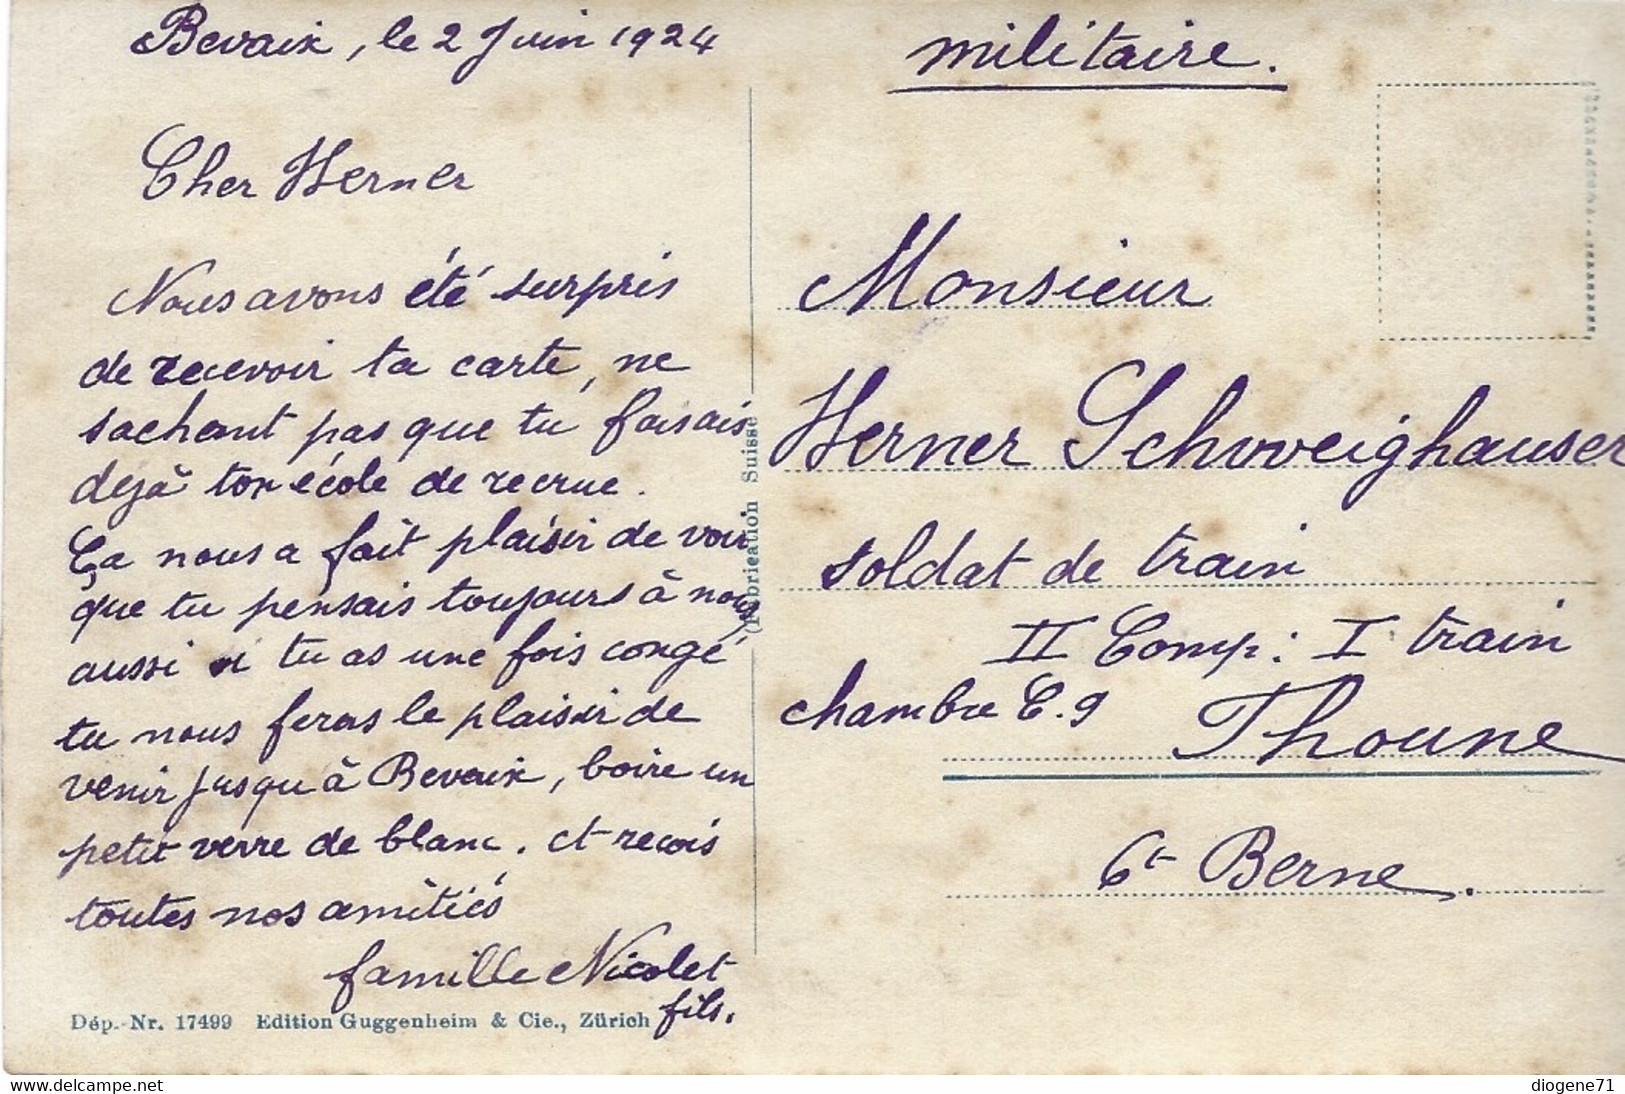 Bevaix, le 2 Juin 1924
Cher Werner
Nous avons été surpris
de recevoir ta carte, ne
sachant pas que tu faisais
déjà ton école de recrue.
Ça nous a fait plaisir de voir
que tu pensais toujours à nous,
aussi si tu as une fois congé
tu nous feras le plaisir de
venir jusqu'à Bevaix, boire un
petit verre de blanc. et reçois
toutes nos amitiés
famille Nicolet
fils.
Dép.-Nr. 17499 Edition Guggenheim & Cie., Zürich
(Fabrication Suisse)
militaire.
Monsieur
Werner Schweighauser
soldat de train
II Comp: I train
chambre C.9
Thoune
Ct Berne.
https://www.delcampe.net
diogene71